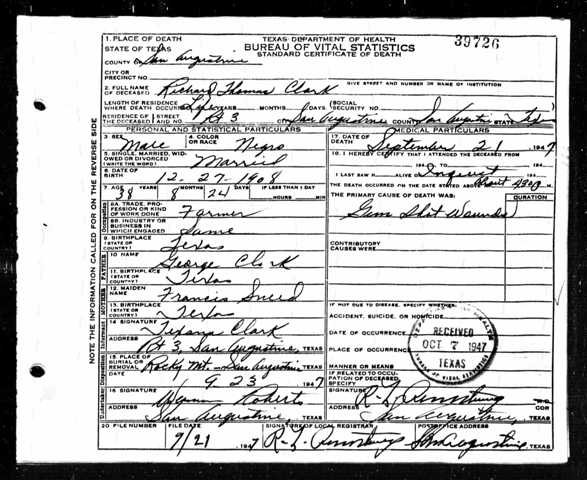 39726
1. PLACE OF DEATH
STATE OF TEXAS
TEXAS DEPARTMENT OF HEALTH
BUREAU OF VITAL STATISTICS
STANDARD CERTIFICATE OF DEATH
COUNTY OF San Augustine
CITY OR PRECINCT NO.
GIVE STREET AND NUMBER OR NAME OF INSTITUTION
2. FULL NAME OF DECEASED Richard Thomas Clark
LENGTH OF RESIDENCE WHERE DEATH OCCURRED Life YEARS MONTHS DAYS (SOCIAL SECURITY NO.
RESIDENCE OF THE DECEASED STREET AND NO. Rt 3 CITY San Augustine COUNTY San Augustine STATE Tex
PERSONAL AND STATISTICAL PARTICULARS
MEDICAL PARTICULARS
3. SEX Male 4. COLOR OR RACE Negro
17. DATE OF DEATH September 21 1947
5. SINGLE, MARRIED, WIDOWED OR DIVORCED (WRITE THE WORD) Married
18. I HEREBY CERTIFY THAT I ATTENDED THE DECEASED FROM
194 TO 194
6. DATE OF BIRTH 12-27-1908
I LAST SAW H ALIVE ON Inquest 194
7. AGE 38 YEARS 8 MONTHS 24 DAYS IF LESS THAN 1 DAY HOURS MIN
THE DEATH OCCURRED ON THE DATE STATED ABOVE AT M.
8A. TRADE, PROFESSION OR KIND OF WORK DONE Farmer
THE PRIMARY CAUSE OF DEATH WAS: DURATION
Gun Shot Wounds
8B. INDUSTRY OR BUSINESS IN WHICH ENGAGED Same
9. BIRTHPLACE (STATE OR COUNTRY) Texas
CONTRIBUTORY CAUSES WERE:
10. NAME George Clark
11. BIRTHPLACE (STATE OR COUNTRY) Texas
12. MAIDEN NAME Francis Sneed
13. BIRTHPLACE (STATE OR COUNTRY) Texas
IF NOT DUE TO DISEASE, SPECIFY WHETHER:
ACCIDENT, SUICIDE, OR HOMICIDE
14. SIGNATURE Texana Clark
DATE OF OCCURRENCE
ADDRESS Rt 3, San Augustine, TEXAS
PLACE OF OCCURRENCE
RECEIVED
OCT 7 1947
TEXAS
15. PLACE OF BURIAL OR REMOVAL Rocky Mt. San Augustine, TEXAS
MANNER OR MEANS
DATE 9 23 1947
IF RELATED TO OCCUPATION OF DECEASED, SPECIFY
16. SIGNATURE Wyman Roberts
SIGNATURE R. L. Armstrong M.D. COR
ADDRESS San Augustine, TEXAS
ADDRESS San Augustine, TEXAS
20. FILE NUMBER FILE DATE 9/21 1947 SIGNATURE OF LOCAL REGISTRAR R. L. Armstrong POSTOFFICE ADDRESS San Augustine, TEXAS
NOTE THE INFORMATION CALLED FOR ON THE REVERSE SIDE